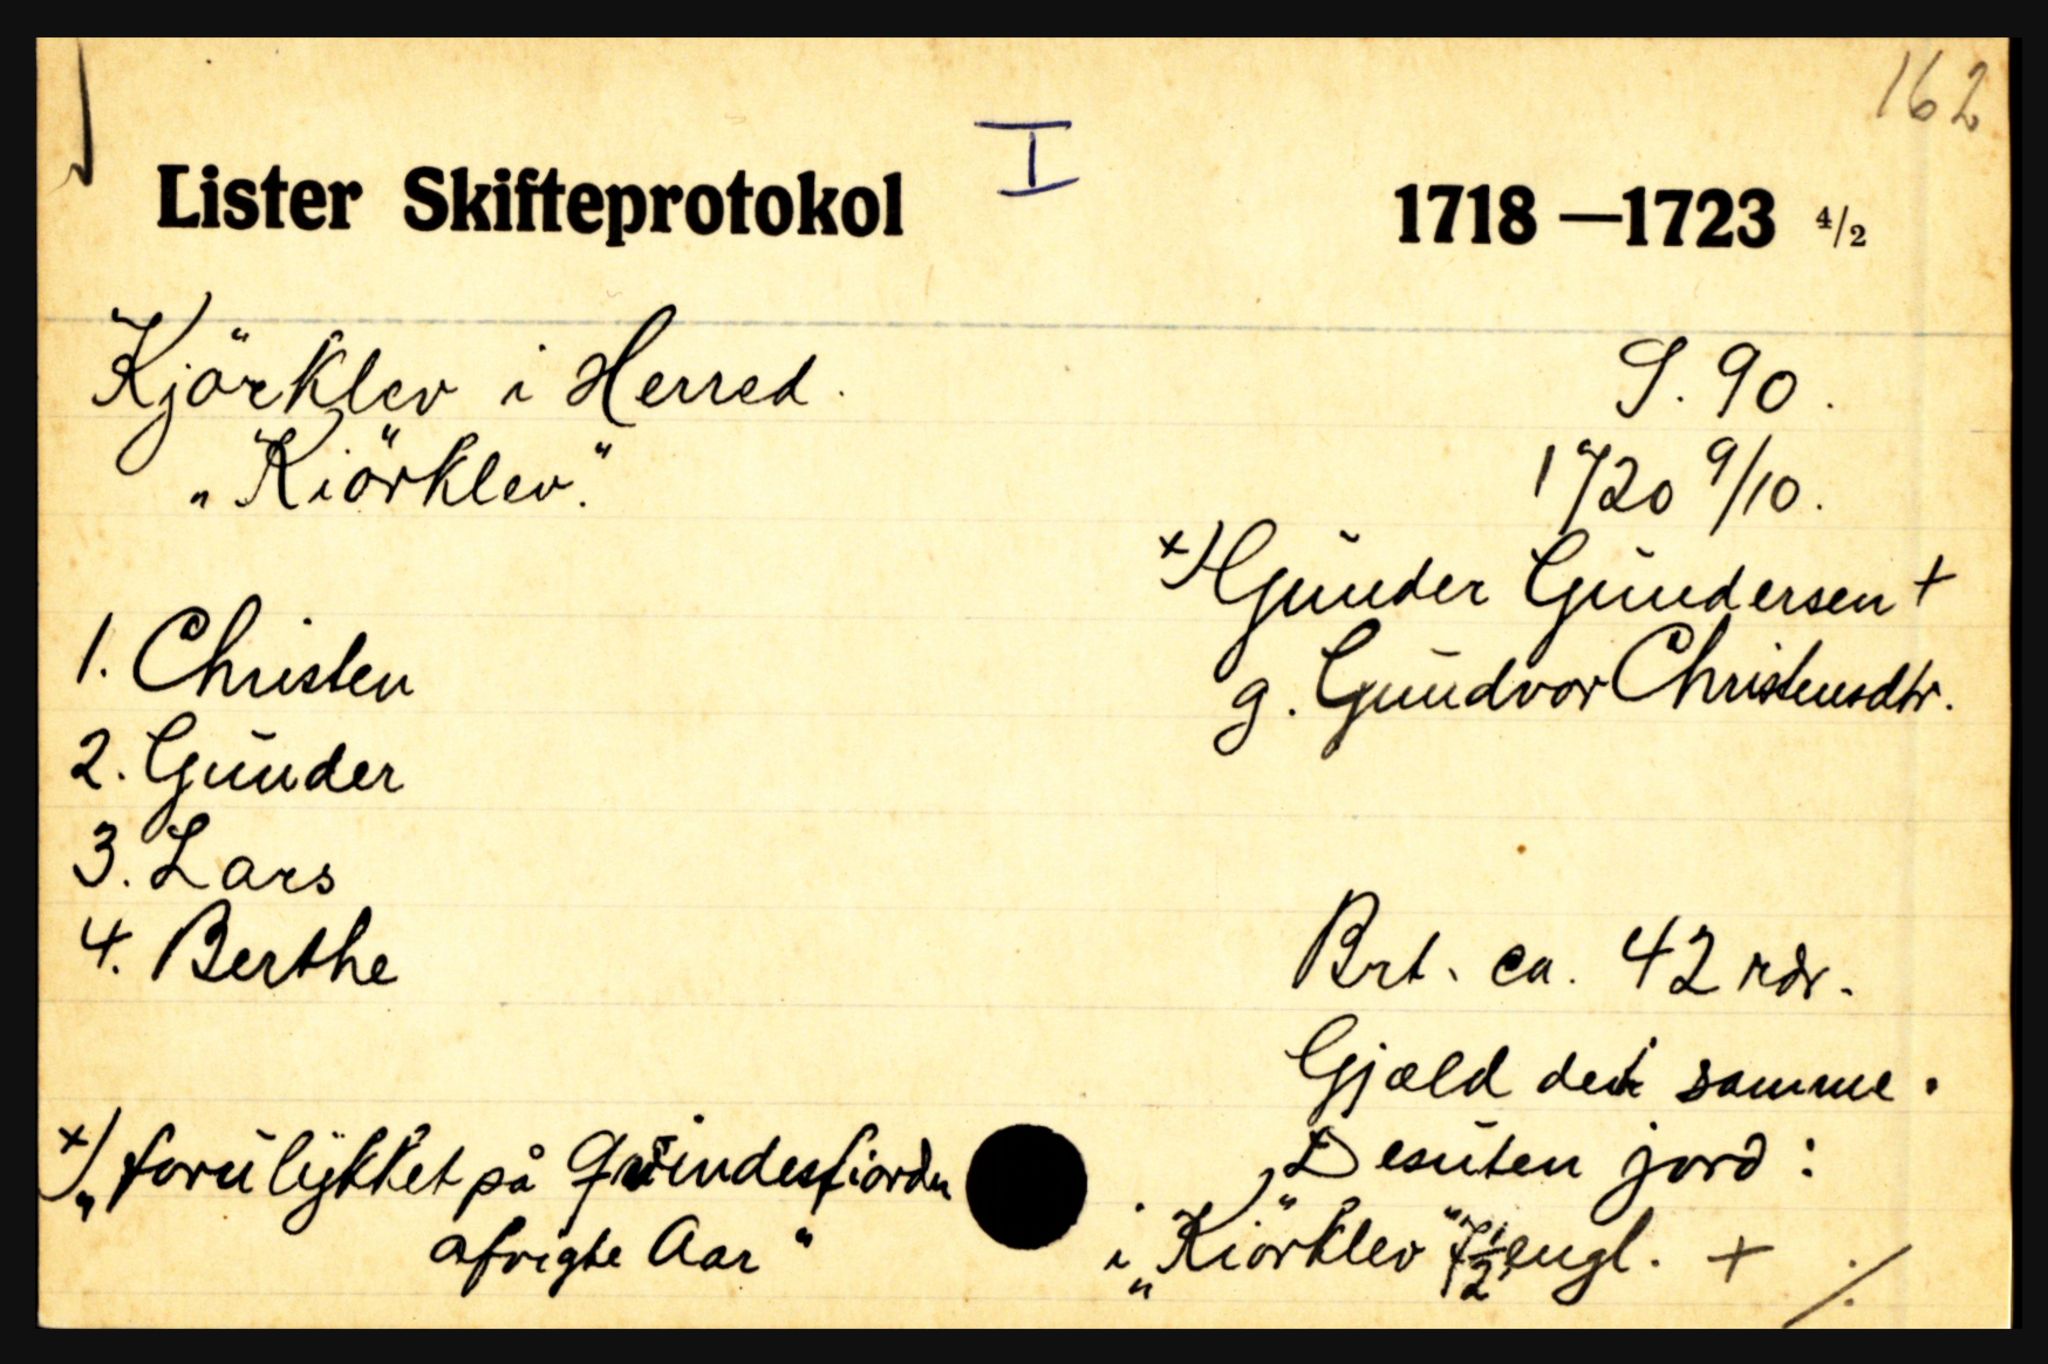 162
I
Lister Skifteprotokol 1718 — 1723 4/2
Kjörklev i Herred.
S. 90.
„Kiörklev."
1720 9/10.
x) Gunder Gundersen +
1. Christen
g. Gundvor Christensdtr.
2. Gunder
3. Lars
4. Berthe
Brt. ca. 42 rdr.
Gjæld det samme.
x) „forulykket på Grindesfiorden
Desuten jord:
afvigte Aar"
i „Kiörklev" 7 1/2 engl. + ./.